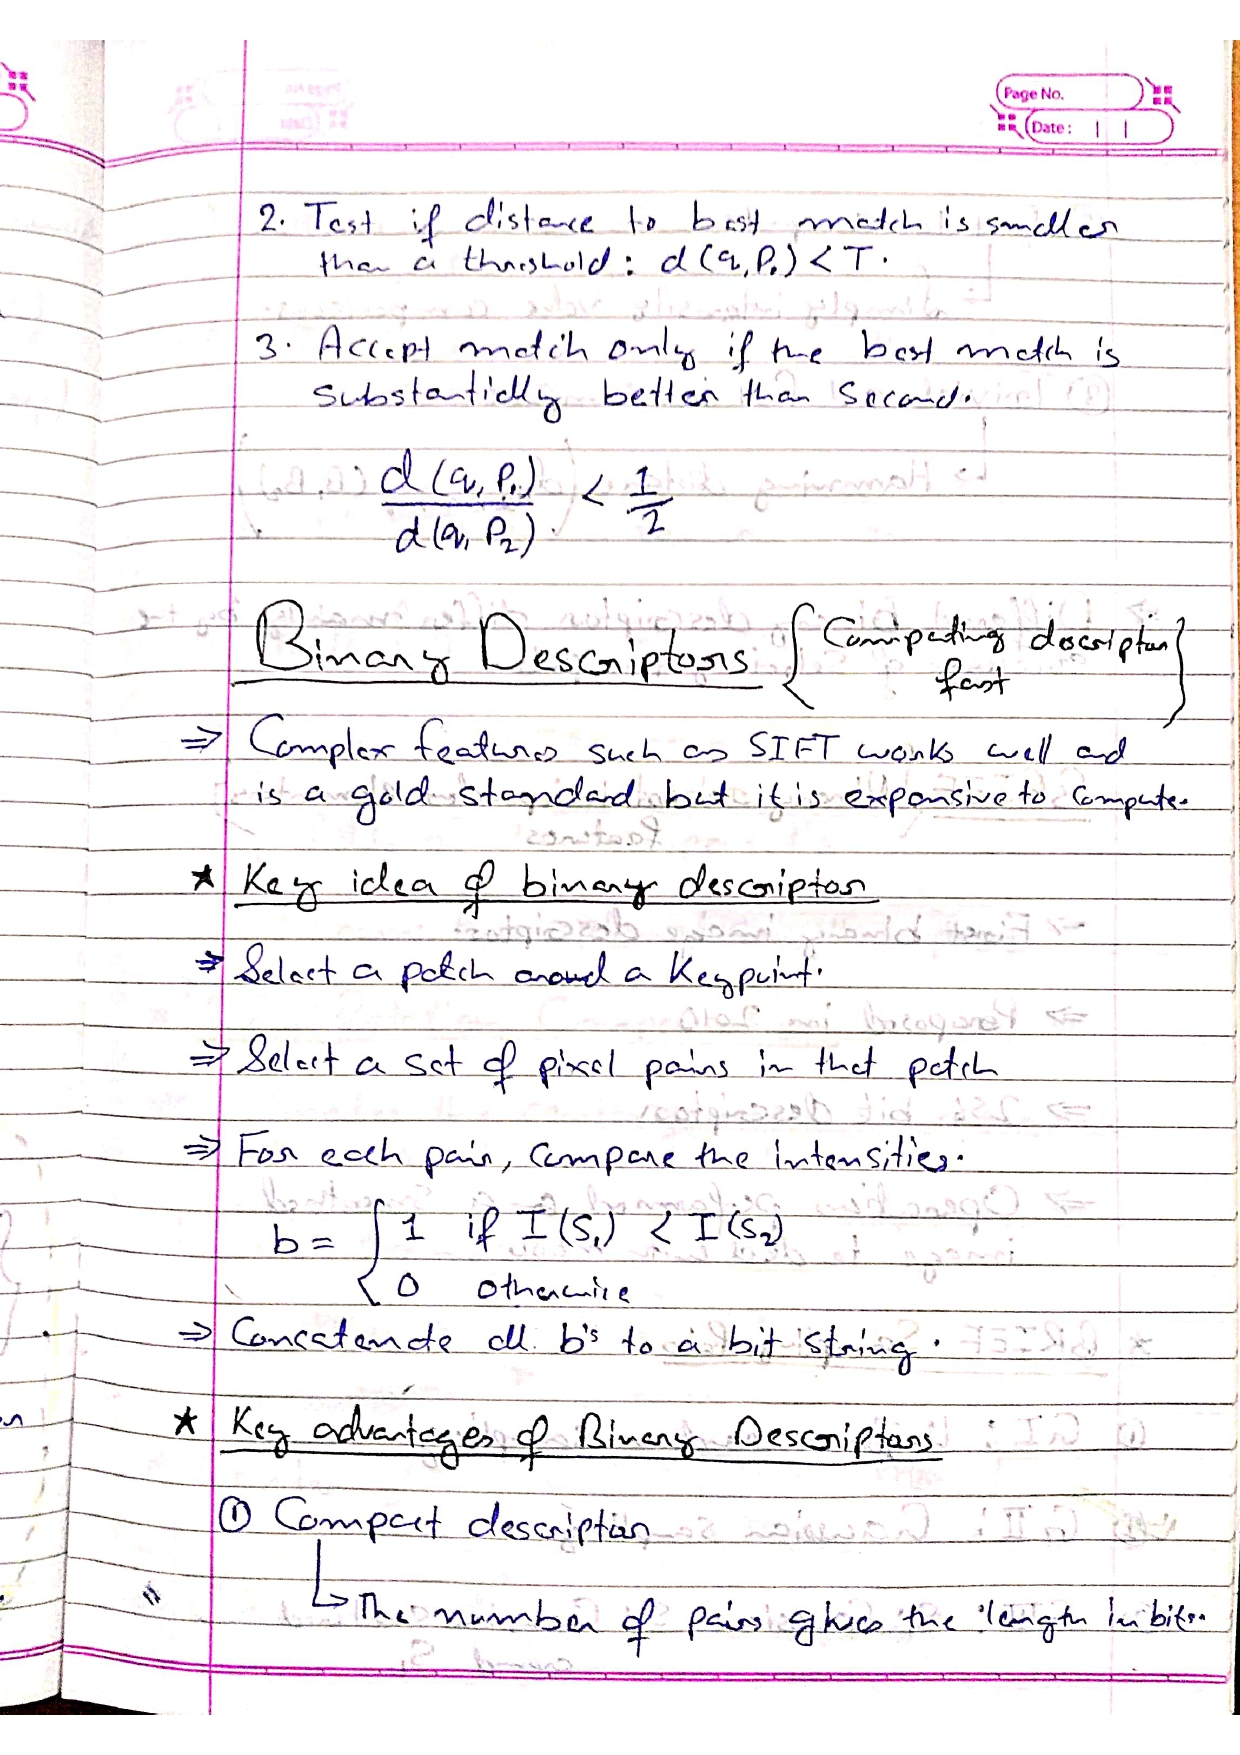 Page No.
Date: | |
2. Test if distance to best match is smaller
than a threshold: d(q, P₁) < T.
3. Accept match only if the best match is
substantially better than second.
d(q, P₁) / d(q, P₂) < 1/2
Binary Descriptors { Computing descriptor
fast }
⇒ Complex features such as SIFT works well and
is a gold standard but it is expensive to compute.
★ Key idea of binary descriptor
⇒ Select a patch around a Keypoint.
⇒ Select a set of pixel pairs in that patch
⇒ For each pair, compare the intensities.
b = { 1 if I(S₁) < I(S₂)
0 otherwise
⇒ Concatenate all b's to a bit string.
★ Key advantages of Binary Descriptors
① Compact descriptor
↳ The number of pairs gives the length in bits.